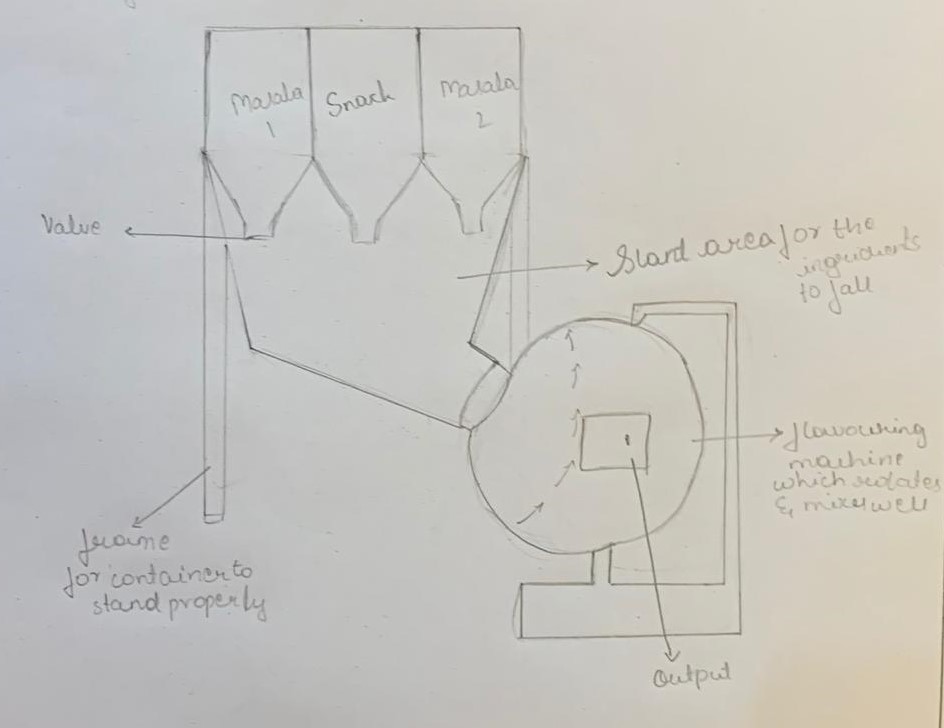 Masala
1
Snack
Masala
2
Valve
Slant area for the
ingredients
to fall
flavouring
machine
which rotates
& mixes well
frame
for container to
stand properly
Output